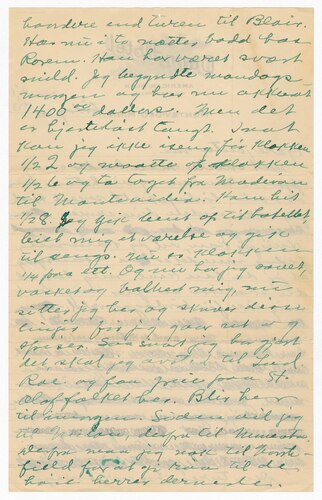 hundere end turen til Blair.
Har nu i to nætter bodd hos
Rosem. Han har været svært
snild. Jeg begyndte mandags
morgen og har nu akkurat
1400 00 dollars. Men det
er hjerteløst tungt. I nat
kom jeg ikke i seng før klokken
1/2 2 og maatte op klokken
1/2 6 og ta toget fra Madison
til Montevideo. Kom hit
1/2 8. Jeg gik bent op til hotellet,
leiet mig et værelse og gik
til sengs. Nu er klokken
1/4 paa ett. Og nu har jeg sovet,
vasket og balbert mig, nu
sitter jeg her og skriver disse
linjer før jeg gaar ut og
spiser. Saa snart jeg har gjort
det, skal jeg ut til
og faa greie paa St.
Olaf folket her. Blir her
til imorgen. Siden vil jeg
til Milan, derfra til
Derfra maa jeg nok til North-
field for at gi raad til de
høie herrer dernede.